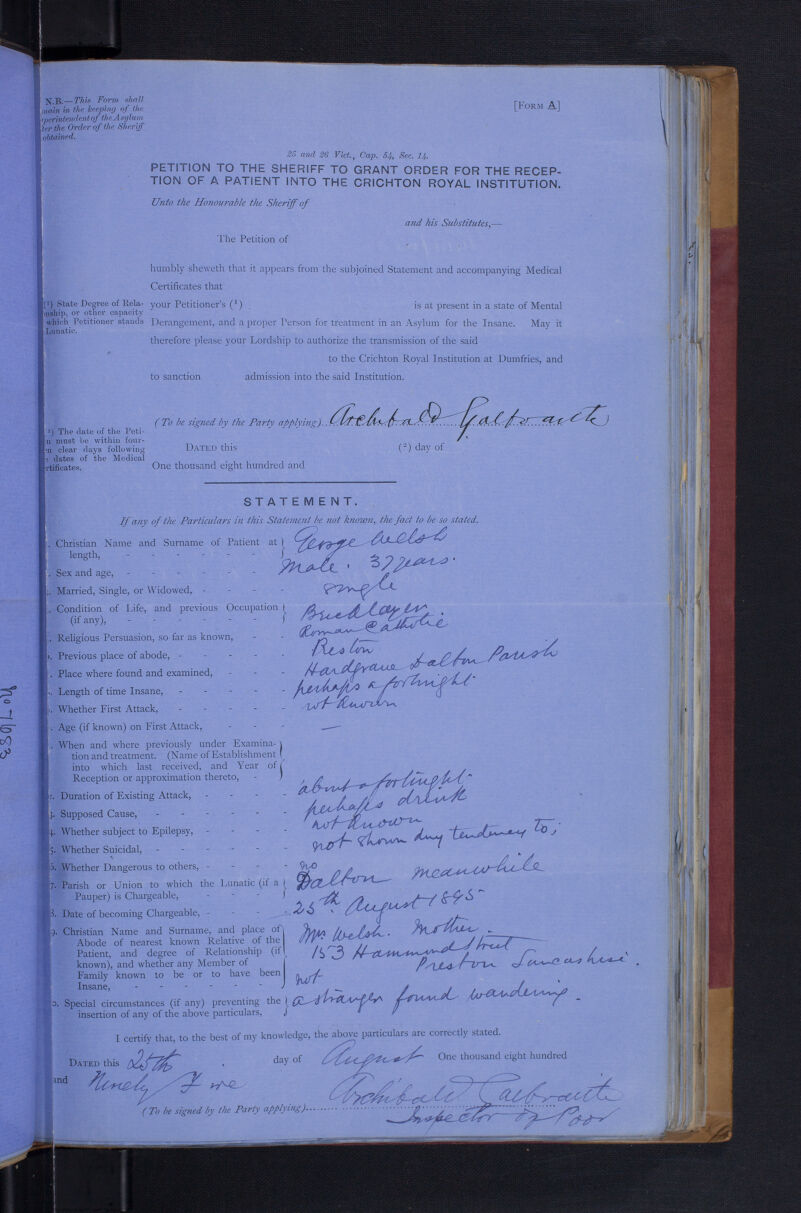 N.B.—This Form shall
main in the keeping of the
perintendent of the Asylum
ter the Order of the Sheriff
obtained.
[FORM A]
25 and 26 Vict., Cap. 54, Sec. 14.
PETITION TO THE SHERIFF TO GRANT ORDER FOR THE RECEP-
TION OF A PATIENT INTO THE CRICHTON ROYAL INSTITUTION.
Unto the Honourable the Sheriff of
and his Substitutes,—
The Petition of
humbly sheweth that it appears from the subjoined Statement and accompanying Medical
Certificates that
(1) State Degree of Rela-
onship, or other capacity
which Petitioner stands
Lunatic.
your Petitioner's (1) is at present in a state of Mental
Derangement, and a proper Person for treatment in an Asylum for the Insane. May it
therefore please your Lordship to authorize the transmission of the said
to the Crichton Royal Institution at Dumfries, and
to sanction admission into the said Institution.
(To be signed by the Party applying) Archibald Galbraith
2) The date of the Peti-
n must be within four-
n clear days following
dates of the Medical
rtificates.
DATED this (2) day of
One thousand eight hundred and
STATEMENT.
If any of the Particulars in this Statement be not known, the fact to be so stated.
. Christian Name and Surname of Patient at length, - George Welsh
. Sex and age, - Male. 37 years.
. Married, Single, or Widowed, - single
. Condition of Life, and previous Occupation (if any), - Bricklayer.
. Religious Persuasion, so far as known, - Roman Catholic
. Previous place of abode, - Preston
. Place where found and examined, - Hardgrave Dalton Parish
. Length of time Insane, - perhaps a fortnight
. Whether First Attack, - not known
. Age (if known) on First Attack, - —
. When and where previously under Examina-
tion and treatment. (Name of Establishment
into which last received, and Year of
Reception or approximation thereto, -
. Duration of Existing Attack, - about a fortnight.
3. Supposed Cause, - perhaps drink
4. Whether subject to Epilepsy, - not known
5. Whether Suicidal, - not shown any tendency to;
6. Whether Dangerous to others, - no
7. Parish or Union to which the Lunatic (if a Pauper) is Chargeable, - Dalton meanwhile
8. Date of becoming Chargeable, - 25th. August 1895
9. Christian Name and Surname, and place of
Abode of nearest known Relative of the
Patient, and degree of Relationship (if
known), and whether any Member of
Family known to be or to have been
Insane, -
Mrs Welsh. Mother.
153 Hammond Street
Preston Lancashire.
not
0. Special circumstances (if any) preventing the insertion of any of the above particulars, a stranger found wandering.
I certify that, to the best of my knowledge, the above particulars are correctly stated.
DATED this 25th day of August One thousand eight hundred
and Ninety Five
(To be signed by the Party applying) Archibald Galbraith
Inspector of Poor
No 7683